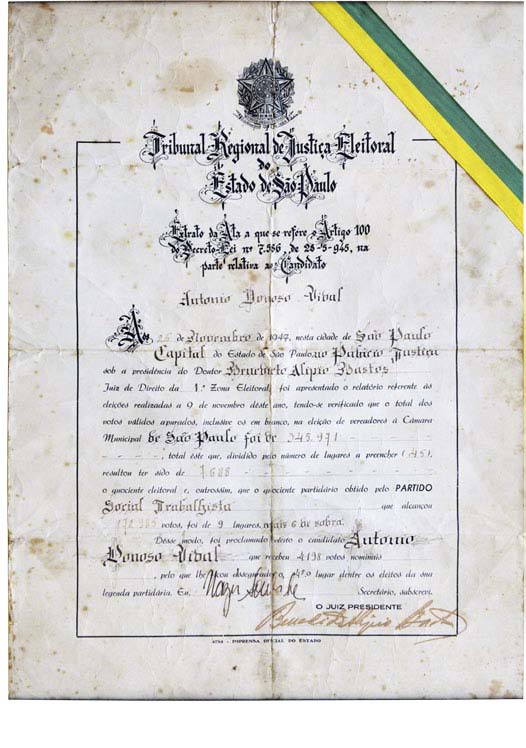 Tribunal Regional de Justiça Eleitoral
do
Estado de São Paulo
Extrato da Ata a que se refere o Artigo 100
do Decreto-Lei nº 7.586, de 28-5-945, na
parte relativa ao Candidato
Antonio Donoso Vidal
Aos 26 de Novembro de 1947, nesta cidade de São Paulo
Capital do Estado de São Paulo, no Palácio Justiça
sob a presidência do Doutor Benedicto Alipio Bastos
Juiz de Direito da 1.ª Zona Eleitoral, foi apresentado o relatório referente às
eleições realizadas a 9 de novembro dêste ano, tendo-se verificado que o total dos
votos válidos apurados, inclusive os em branco, na eleição de vereadores à Câmara
Municipal de São Paulo foi de 345.971
total êste que, dividido pelo número de lugares a preencher (45),
resultou ter sido de 7688
o quociente eleitoral e, outrossim, que o quociente partidário obtido pelo PARTIDO
Social Trabalhista que alcançou
votos, foi de 9 lugares, mais 6 de sobra.
Dêsse modo, foi proclamado eleito o candidato Antonio
Donoso Vidal que recebeu 4198 votos nominais
, pelo que lhe ficou assegurado o lugar dentre os eleitos da sua
legenda partidária. Eu, Secretário, subscrevi.
O JUIZ PRESIDENTE
Benedicto Alipio Bastos
6734 - IMPRENSA OFICIAL DO ESTADO